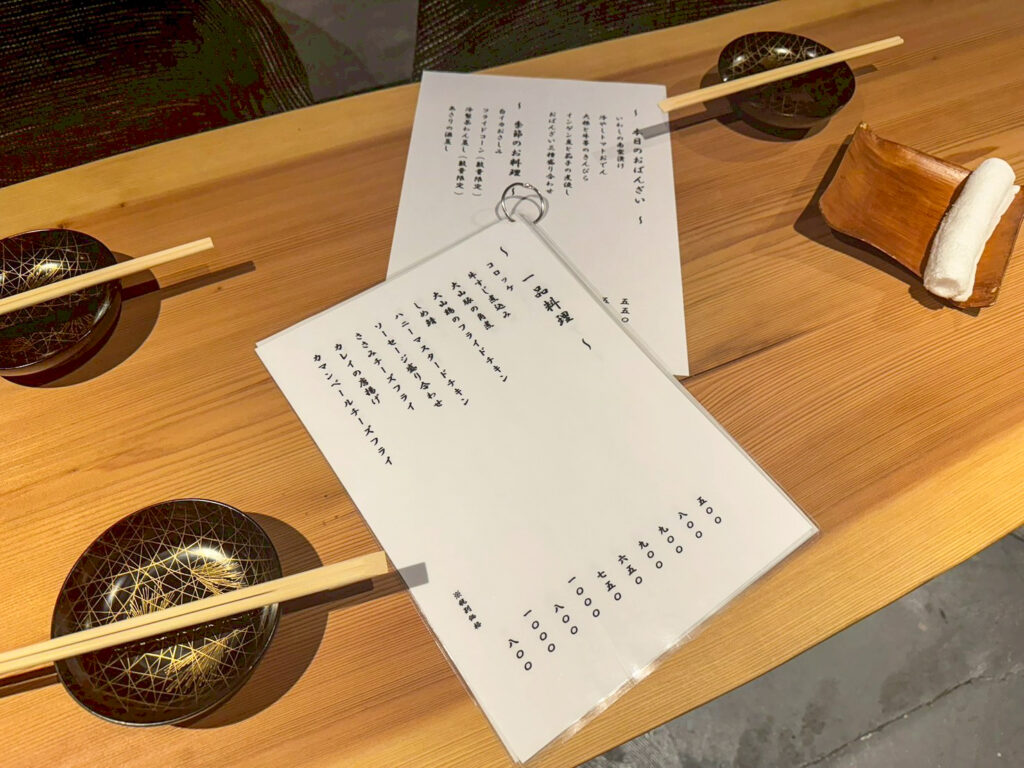 〜 本日のおばんざい 〜
いわしの南蛮漬け
冷やしトマトおでん
大根と牛蒡のきんぴら
インゲン豆と茄子の煮浸し
おばんざい三種盛り合わせ
〜 季節のお料理 〜
白イカおさしみ
フライドコーン（数量限定）
冷製茶わん蒸し（数量限定）
あさりの酒蒸し
五五〇
〜 一品料理 〜
コロッケ 五〇〇
牛すじ煮込み 八〇〇
大山豚の角煮 九〇〇
大山鶏のフライドチキン 九〇〇
しめ鯖 六五〇
ハニーマスタードチキン 七五〇
ソーセージ盛り合わせ 一〇〇〇
ささみチーズフライ 八〇〇
カレイの唐揚げ 一〇〇〇
カマンベールチーズフライ 八〇〇
※税別価格